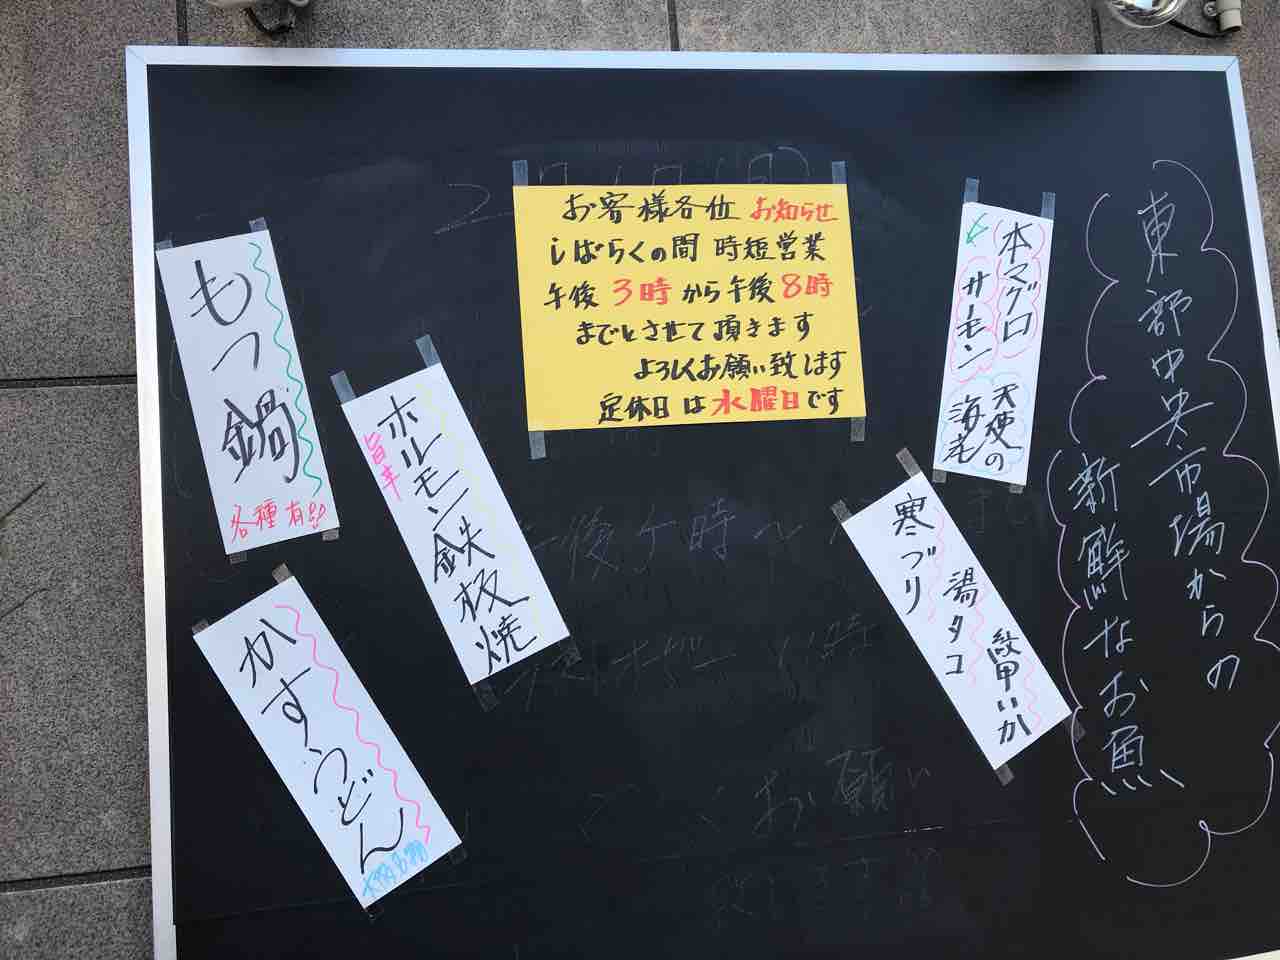 お客様各位 お知らせ
しばらくの間 時短営業
午後3時から午後8時
までとさせて頂きます
よろしくお願い致します
定休日は水曜日です
東部中央市場からの
新鮮なお魚
本マグロ
サーモン
天使の
海老
寒ブリ
湯タコ
紋甲いか
ホルモン鉄板焼
旨辛
もつ鍋
各種有
かすうどん
大阪名物
お願い